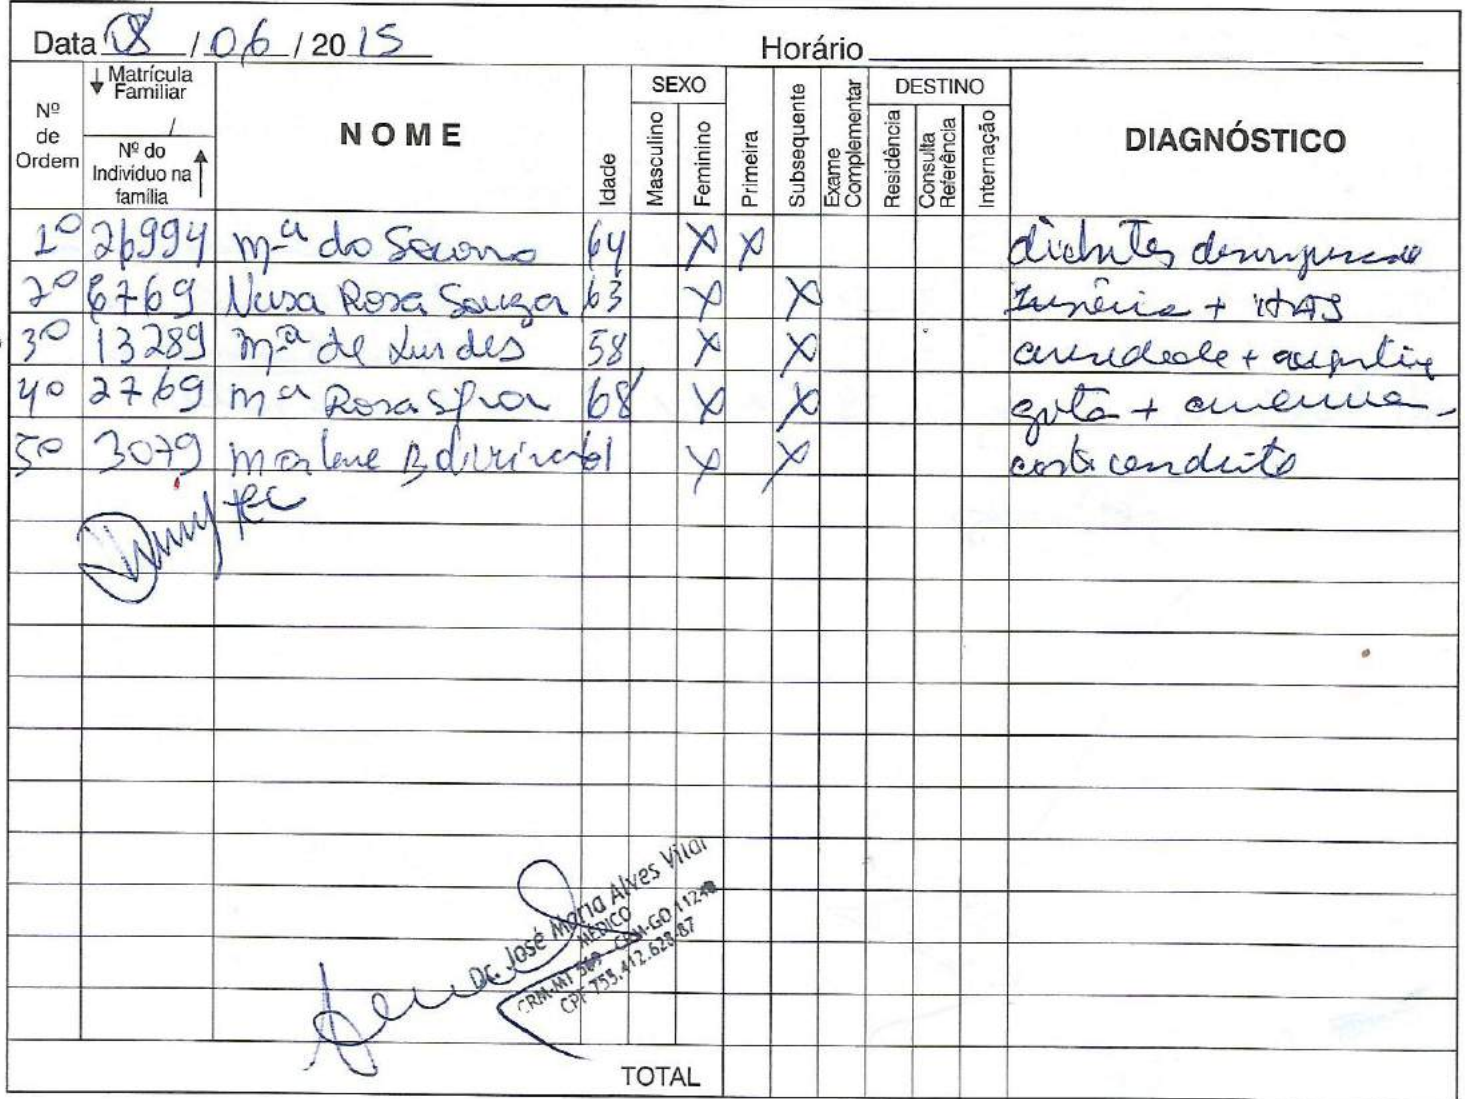 Data 08 / 06 / 2015 Horário
Nº de Ordem
Matrícula Familiar
/
Nº do Individuo na família
NOME
Idade
SEXO
Masculino
Feminino
Primeira
Subsequente
Exame Complementar
DESTINO
Residência
Consulta Referência
Internação
DIAGNÓSTICO
1º 26994 Mª do Socorro 64 X X diabetes
2º 6769 Rosa Souza 63 X X + HAS
3º 13289 Mª de Lurdes 58 X X +
4º 2769 Mª Rosa 68 X X gota +
5º 3079 Marlene B 61 X X
Dr. José Maria Alves Vilar
MÉDICO
CRM-MT CRM-GO
CPF 755.412.628-87
TOTAL